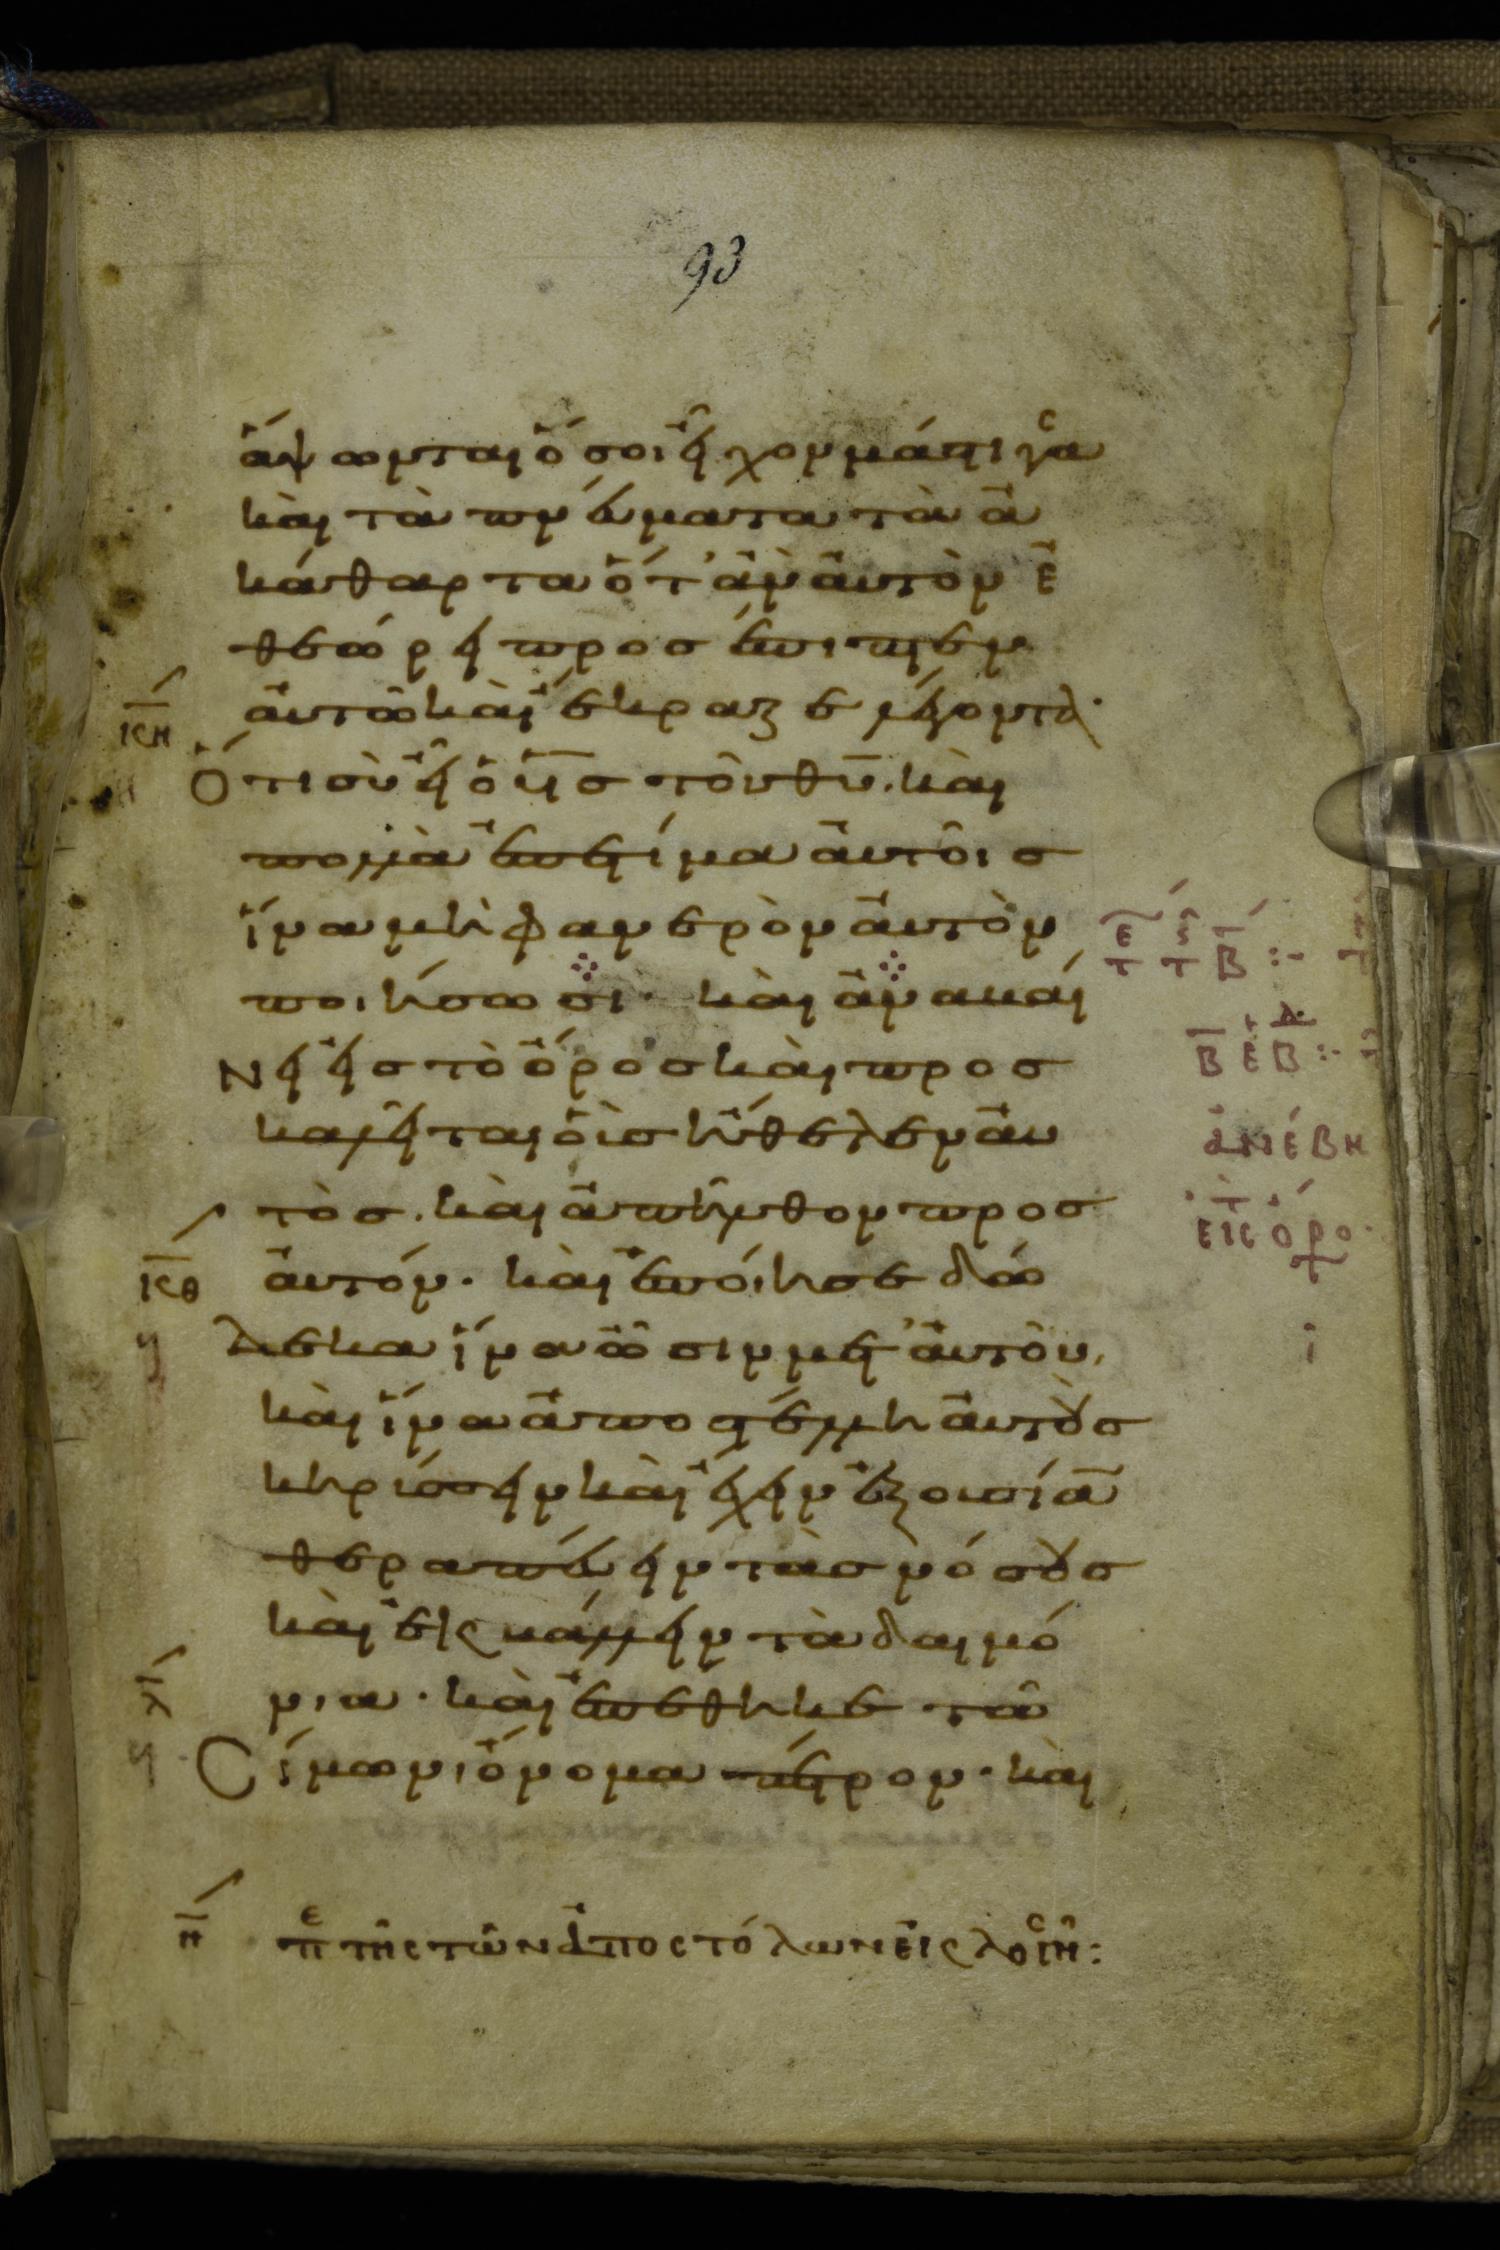 93
ἅψωνται ὅσοι εἶχον μάστιγας
καὶ τὰ πνεύματα τὰ ἀ
κάθαρτα ὅτ' ἂν αὐτὸν ἐ
θεώρει προσέπιπτεν
αὐτῶ καὶ ἔκραζε λέγοντα·
κη
Ὅτι σὺ εἶ ὁ υἱς τοῦ θυ. καὶ
πολλὰ ἐπετίμα αὐτοῖσ
ἵνα μὴ φανερὸν αὐτὸν
ποιήσωσι· καὶ ἀναβαί
Νει εἰσ τὸ ὄροσ καὶ προσ
καλεῖται οὓσ ἤθελεν αὐ
τόσ. καὶ ἀπῆλθον προσ
αὐτόν· καὶ ἐποίησε δώ
κθ
δεκα ἵνα ὦσιν μετ' αὐτοῦ,
καὶ ἵνα ἀποστέλλη αὐτοὺσ
κηρύσσειν καὶ ἔχειν ἐξουσίαν
θεραπεύειν τὰσ νόσουσ
καὶ ἐκβάλλειν τὰ δαιμό
νια· καὶ ἐπέθηκε τῶ
λ
Σίμωνι ὄνομα πέτρον· καὶ
ἀνέβη
εις ὄρο
η πε τῆς τῶν ἀποστόλων ἐκλογῆς: